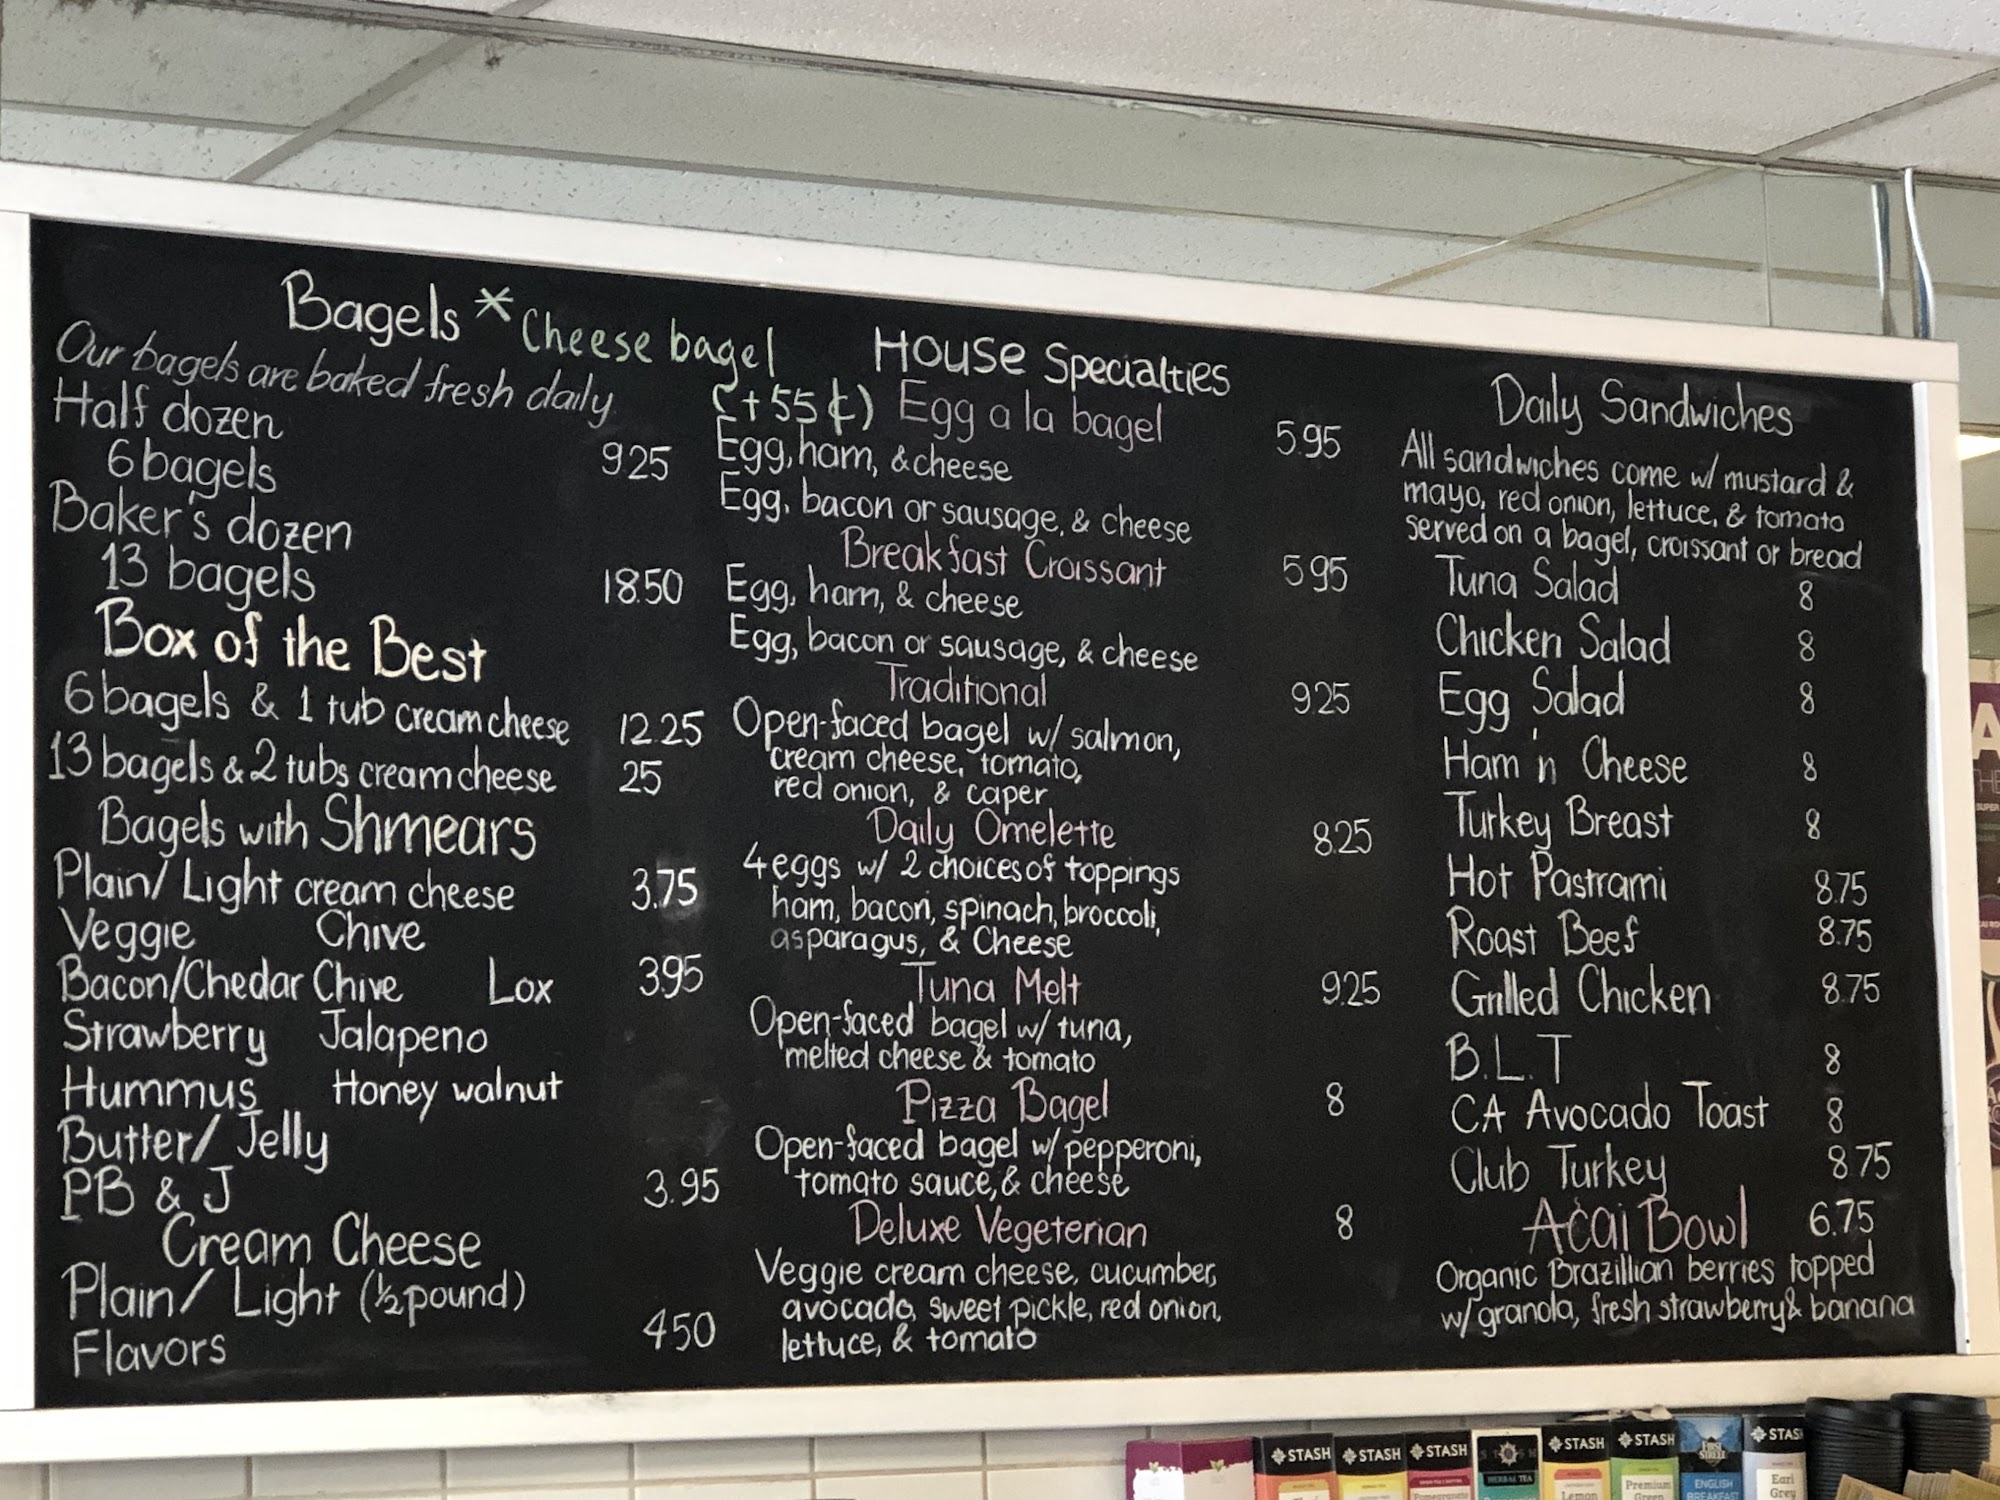 Bagels * Cheese bagel (+55¢)
Our bagels are baked fresh daily
Half dozen
6 bagels 9.25
Baker's dozen
13 bagels 18.50
Box of the Best
6 bagels & 1 tub cream cheese 12.25
13 bagels & 2 tubs cream cheese 25
Bagels with Shmears
Plain/Light cream cheese 3.75
Veggie Chive
Bacon/Chedar Chive Lox 3.95
Strawberry Jalapeno
Hummus Honey walnut
Butter/Jelly
PB & J 3.95
Cream Cheese
Plain/Light (½ pound)
Flavors 4.50
House Specialties
Egg a la bagel 5.95
Egg, ham, & cheese
Egg, bacon or sausage, & cheese
Breakfast Croissant 5.95
Egg, ham, & cheese
Egg, bacon or sausage, & cheese
Traditional 9.25
Open-faced bagel w/ salmon,
cream cheese, tomato,
red onion, & caper
Daily Omelette 8.25
4 eggs w/ 2 choices of toppings
ham, bacon, spinach, broccoli,
asparagus, & Cheese
Tuna Melt 9.25
Open-faced bagel w/ tuna,
melted cheese & tomato
Pizza Bagel 8
Open-faced bagel w/ pepperoni,
tomato sauce, & cheese
Deluxe Vegeterian 8
Veggie cream cheese, cucumber,
avocado, sweet pickle, red onion,
lettuce, & tomato
Daily Sandwiches
All sandwiches come w/ mustard &
mayo, red onion, lettuce, & tomato
served on a bagel, croissant or bread
Tuna Salad 8
Chicken Salad 8
Egg Salad 8
Ham 'n Cheese 8
Turkey Breast 8
Hot Pastrami 8.75
Roast Beef 8.75
Grilled Chicken 8.75
B.L.T 8
CA Avocado Toast 8
Club Turkey 8.75
Açai Bowl 6.75
Organic Brazillian berries topped
w/ granola, fresh strawberry & banana
STASH
STASH
STASH
HERBAL TEA
STASH
Lemon
STASH
Premium
Green
ENGLISH
BREAKFAST
STASH
Earl
Grey